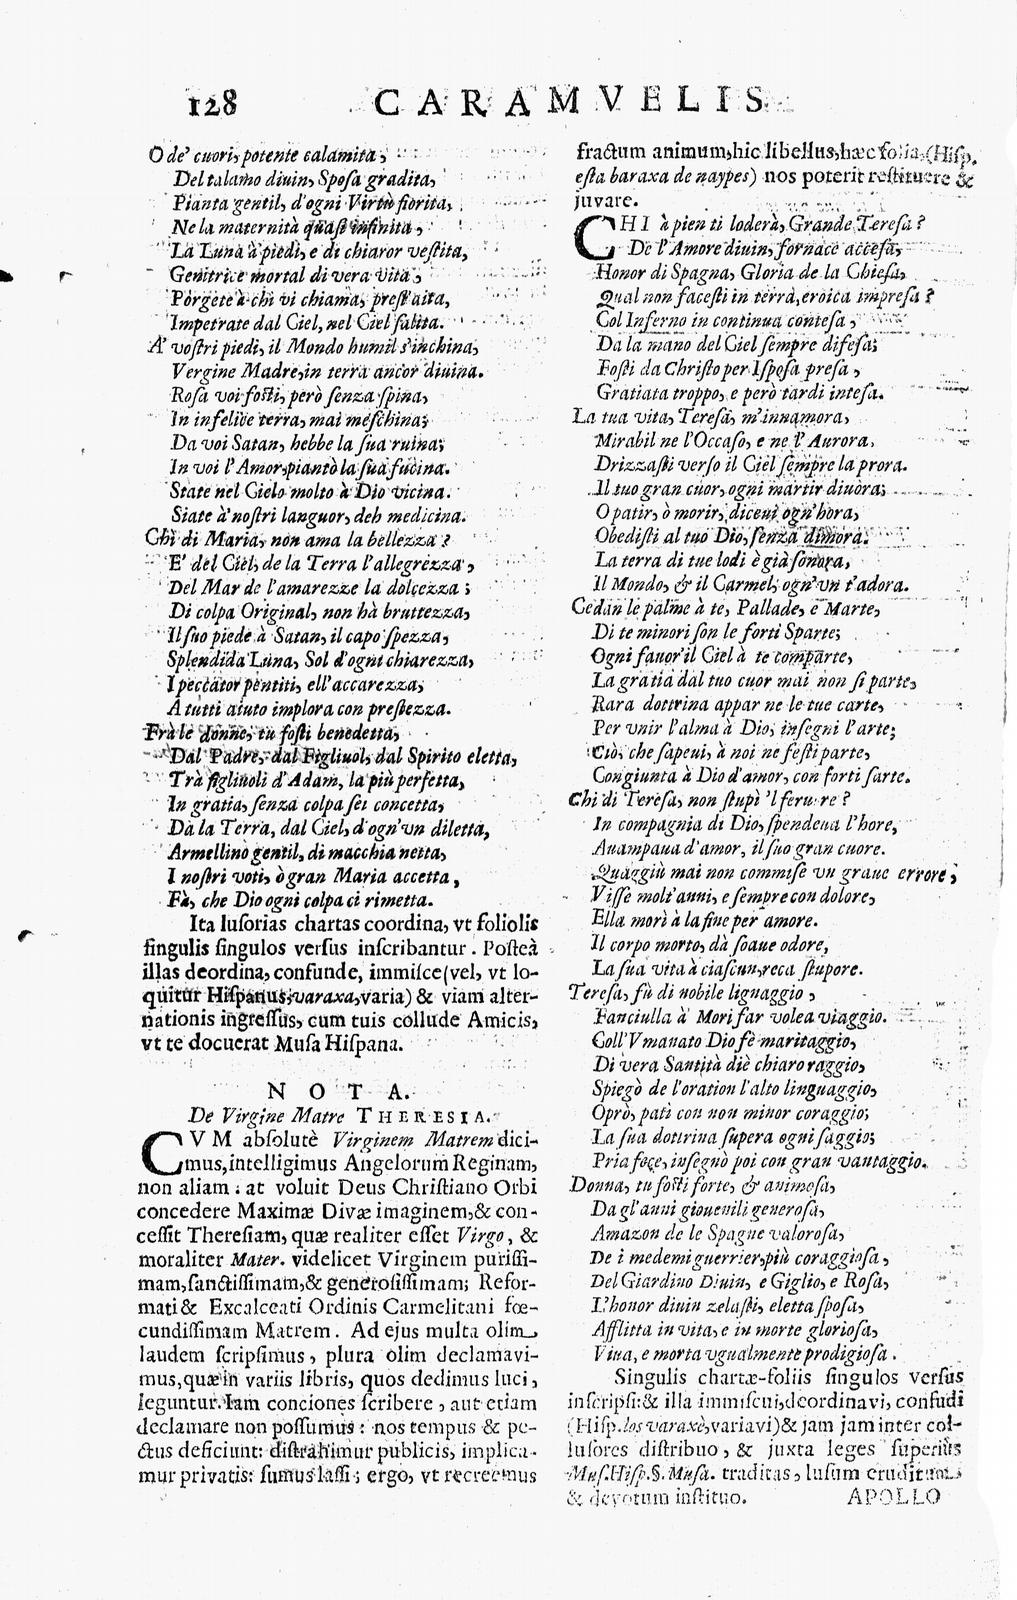 128 CARAMVELIS
O de' cuori, potente calamita,
Del talamo diuin, Sposa gradita,
Pianta gentil, d'ogni Virtù fiorita,
Ne la maternità quasi infinita,
La Luna à piedi, e di chiaror vestita,
Genitrice mortal di vera vita,
Porgete à chi vi chiama, prest'aita,
Impetrate dal Ciel, nel Ciel salita.
A' vostri piedi, il Mondo humil s'inchina,
Vergine Madre, in terra ancor diuina.
Rosa voi fosti, però senza spina,
In infelice terra, mai meschina;
Da voi Satan, hebbe la sua ruina;
In voi l'Amor, piantò la sua fucina.
State nel Cielo molto à Dio vicina.
Siate à nostri languor, deh medicina.
Chi di Maria, non ama la bellezza?
E' del Ciel, de la Terra l'allegrezza,
Del Mar de l'amarezze la dolcezza;
Di colpa Original, non hà bruttezza,
Il suo piede à Satan, il capo spezza,
Splendida Luna, Sol d'ogni chiarezza,
I peccator pentiti, ell'accarezza,
A tutti aiuto implora con prestezza.
Frà le donne, tu fosti benedetta,
Dal Padre, dal Figliuol, dal Spirito eletta,
Trà figliuoli d'Adam, la più perfetta,
In gratia, senza colpa sei concetta,
Da la Terra, dal Ciel, d'ogn'vn diletta,
Armellino gentil, di macchia netta,
I nostri voti, ò gran Maria accetta,
Fà, che Dio ogni colpa ci rimetta.
Ita lusorias chartas coordina, vt foliolis
singulis singulos versus inscribantur. Posteà
illas deordina, confunde, immisce (vel, vt lo-
quitur Hispanus, varaxa, varia) & viam alter-
nationis ingressus, cum tuis collude Amicis,
vt te docuerat Musa Hispana.
NOTA.
De Virgine Matre THERESIA.
CVM absolutè Virginem Matrem dici-
mus, intelligimus Angelorum Reginam,
non aliam: at voluit Deus Christiano Orbi
concedere Maximæ Divæ imaginem, & con-
cessit Theresiam, quæ realiter esset Virgo, &
moraliter Mater. videlicet Virginem purissi-
mam, sanctissimam, & generosissimam; Refor-
mati & Excalceati Ordinis Carmelitani fœ-
cundissimam Matrem. Ad ejus multa olim
laudem scripsimus, plura olim declamavi-
mus, quæ in variis libris, quos dedimus luci,
leguntur. Iam conciones scribere, aut etiam
declamare non possumus: nos tempus & pe-
ctus deficiunt: distrahimur publicis, implica-
mur privatis: sumus lassi; ergo, vt recreemus
fractum animum, hic libellus, hæc folia, (Hisp.
esta baraxa de naypes) nos poterit restituere &
juvare.
CHI à pien ti loderà, Grande Teresa?
De l'Amore diuin, fornace accesa,
Honor di Spagna, Gloria de la Chiesa,
Qual non facesti in terra, eroica impresa?
Col Inferno in continua contesa,
Da la mano del Ciel sempre difesa;
Fosti da Christo per Isposa presa,
Gratiata troppo, e però tardi intesa.
La tua vita, Teresa, m'innamora,
Mirabil ne l'Occaso, e ne l'Aurora,
Drizzasti verso il Ciel sempre la prora.
Il tuo gran cuor, ogni martir diuora;
O patir, ò morir, diceui ogn'hora,
Obedisti al tuo Dio, senza dimora.
La terra di tue lodi è già sonora,
Il Mondo, & il Carmel, ogn'vn t'adora.
Cedan le palme à te, Pallade, e Marte,
Di te minori son le forti Sparte;
Ogni fauor il Ciel à te comparte,
La gratia dal tuo cuor mai non si parte,
Rara dottrina appar ne le tue carte,
Per vnir l'alma à Dio, insegni l'arte;
Ciò, che sapeui, à noi ne festi parte,
Congiunta à Dio d'amor, con forti sarte.
Chi di Teresa, non stupì 'l feruore?
In compagnia di Dio, spendeua l'hore,
Auampaua d'amor, il suo gran cuore.
Quaggiù mai non commise vn graue errore;
Visse molt'anni, e sempre con dolore,
Ella morì à la fine per amore.
Il corpo morto, dà soaue odore,
La sua vita à ciascun, reca stupore.
Teresa, fù di nobile lignaggio,
Fanciulla à Mori far volea viaggio.
Coll'Vmanato Dio fè maritaggio,
Di vera Santità diè chiaro raggio,
Spiegò de l'oration l'alto linguaggio,
Oprò, patì con non minor coraggio;
La sua dottrina supera ogni saggio;
Pria fece, insegnò poi con gran vantaggio.
Donna, tu fosti forte, & animosa,
Da gl'anni giouenili generosa,
Amazon de le Spagne valorosa,
De i medemi guerrier, più coraggiosa,
Del Giardino Diuin, e Giglio, e Rosa,
L'honor diuin zelasti, eletta sposa,
Afflitta in vita, e in morte gloriosa,
Viua, e morta vgualmente prodigiosa.
Singulis chartæ-foliis singulos versus
inscripsi: & illa immiscui, deordinavi, confudi
(Hisp. los varaxè, variavi) & jam jam inter col-
lusores distribuo, & juxta leges superiùs
Mus. Hisp. §. Musa. traditas, lusum eruditum
& devotum instituo. APOLLO